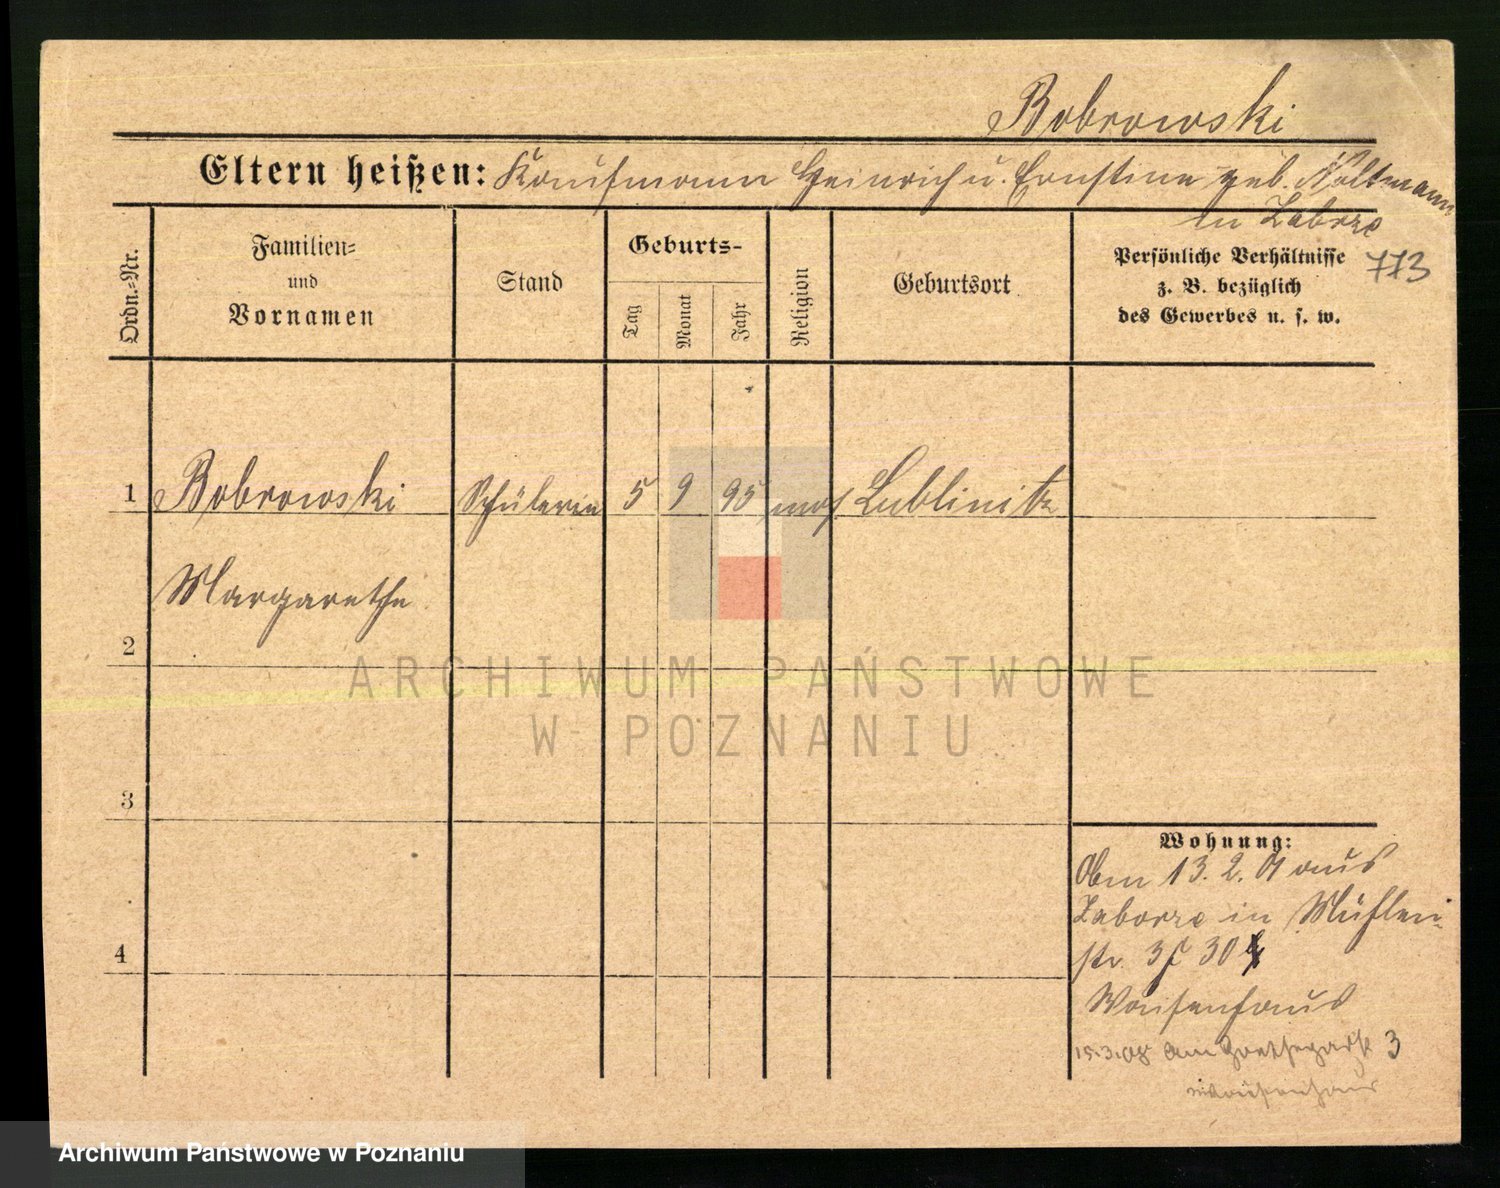 Bobrowski
Eltern heißen: Kaufmann Heinrich u. Ernestine geb. Koltmann
in Zaborze
773
Ordn.-Nr.
Familien-
und
Vornamen
Stand
Geburts-
Tag
Monat
Jahr
Religion
Geburtsort
Persönliche Verhältnisse
z. B. bezüglich
des Gewerbes u. s. w.
1 Bobrowski Schülerin 5 9 95 mos Lublinitz
Margarethe
2
ARCHIWUM PAŃSTWOWE
W POZNANIU
3
Wohnung:
Abm 13. 2. 01 aus
Zaborze in Mühlen-
4
str. 30
Waisenhaus
15.3.08 Am 3
Waisenhaus
Archiwum Państwowe w Poznaniu